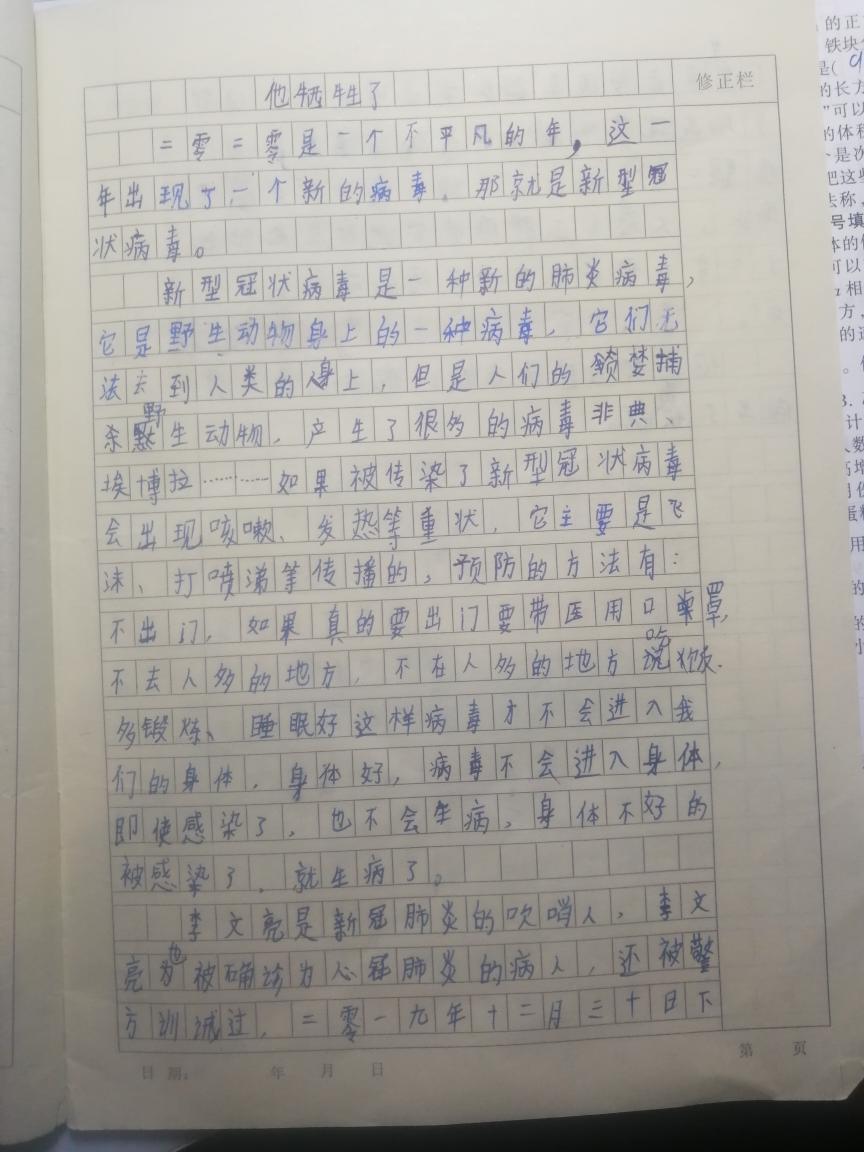 他牺牲了
修正栏
二零二零是一个不平凡的年，这一
年出现了一个新的病毒，那就是新型冠
状病毒。
新型冠状病毒是一种新的肺炎病毒，
它是野生动物身上的一种病毒，它们无
法去到人类的身上，但是人们的
杀野生动物，产生了很多的病毒非典、
埃博拉………如果被传染了新型冠状病毒
会出现咳嗽、发热等重状，它主要是飞
沫、打喷涕等传播的，预防的方法有：
不出门，如果真的要出门要带医用口罩，
不去人多的地方，不在人多的地方吃饭.
多锻炼、睡眠好这样病毒才不会进入我
们的身体，身体好，病毒不会进入身体，
即使感染了，也不会生病，身体不好的
被感染了，就生病了。
李文亮是新冠肺炎的吹哨人，李文
亮也被确诊为心冠肺炎的病人，还被警
方训诫过，二零一九年十二月三十日下
日期： 年 月 日
第 页